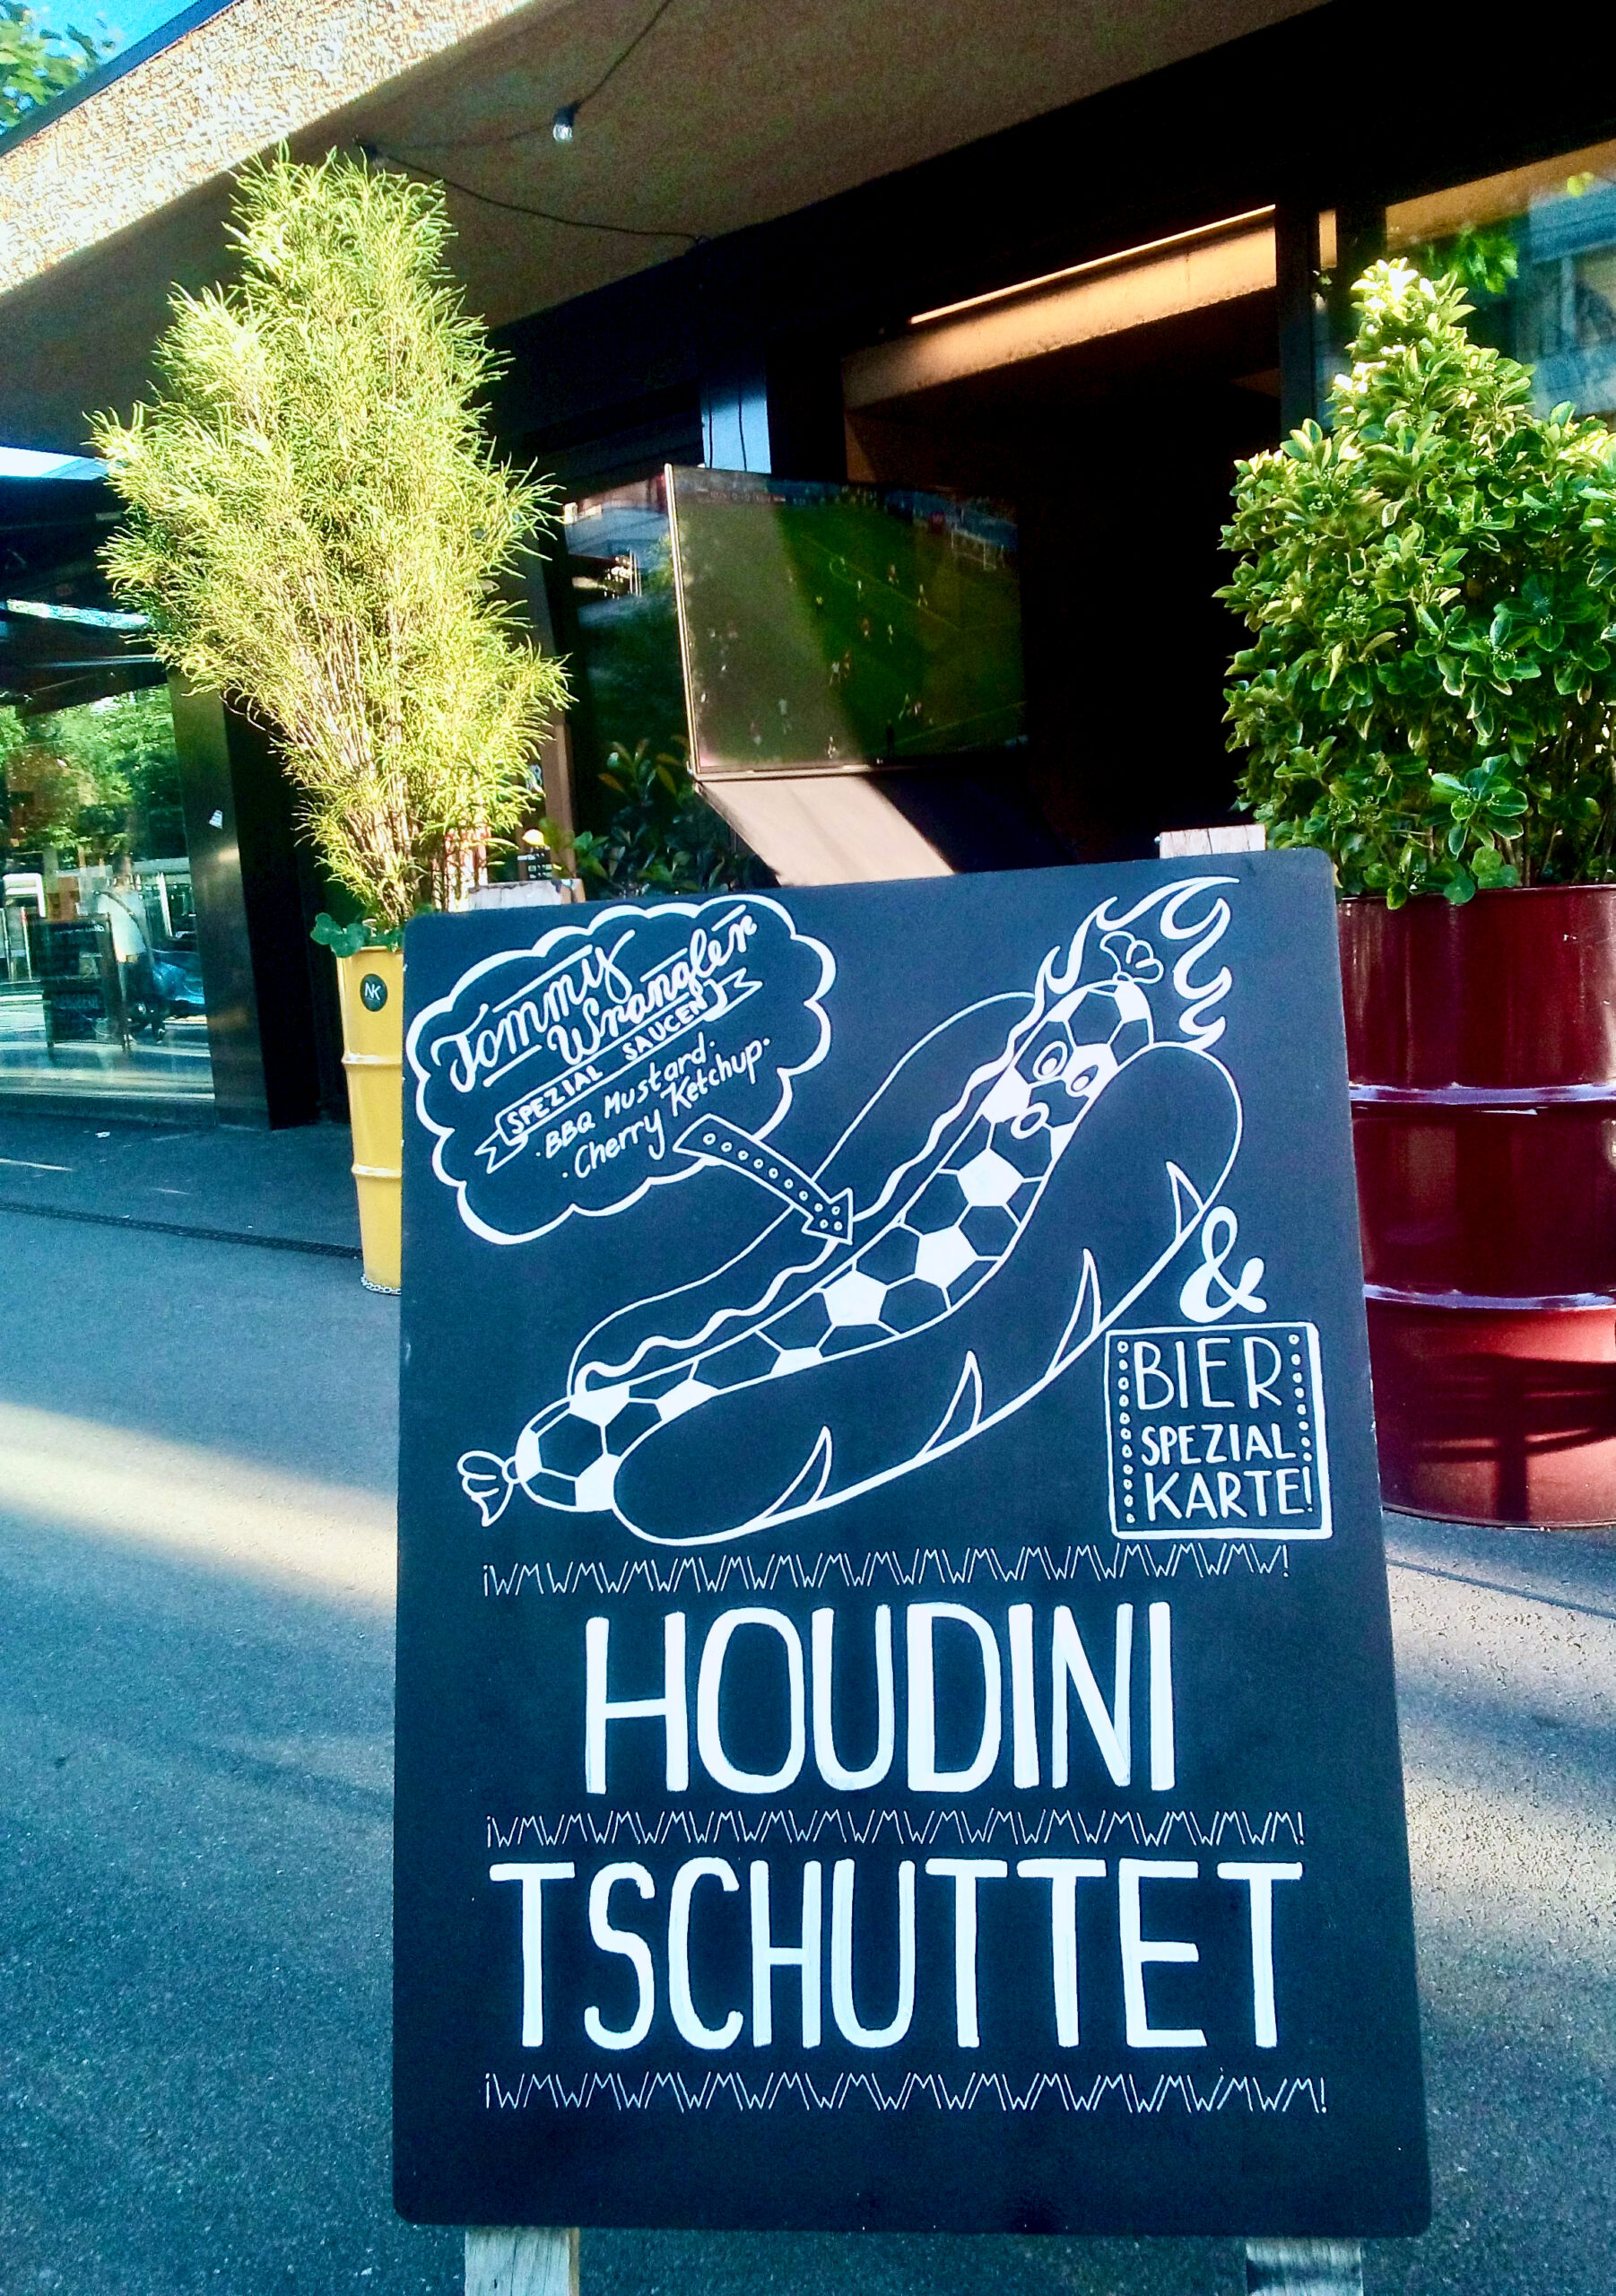 Tommy
Wrangler
SPEZIAL SAUCEN
·BBQ Mustard·
·Cherry Ketchup·
&
BIER
SPEZIAL
KARTE!
¡WMWMWMWMWMWMWMWMWMWMWMWMWMW!
HOUDINI
¡WMWMWMWMWMWMWMWMWMWMWMWMWM!
TSCHUTTET
¡WMWMWMWMWMWMWMWMWMWMWMWM!
NK